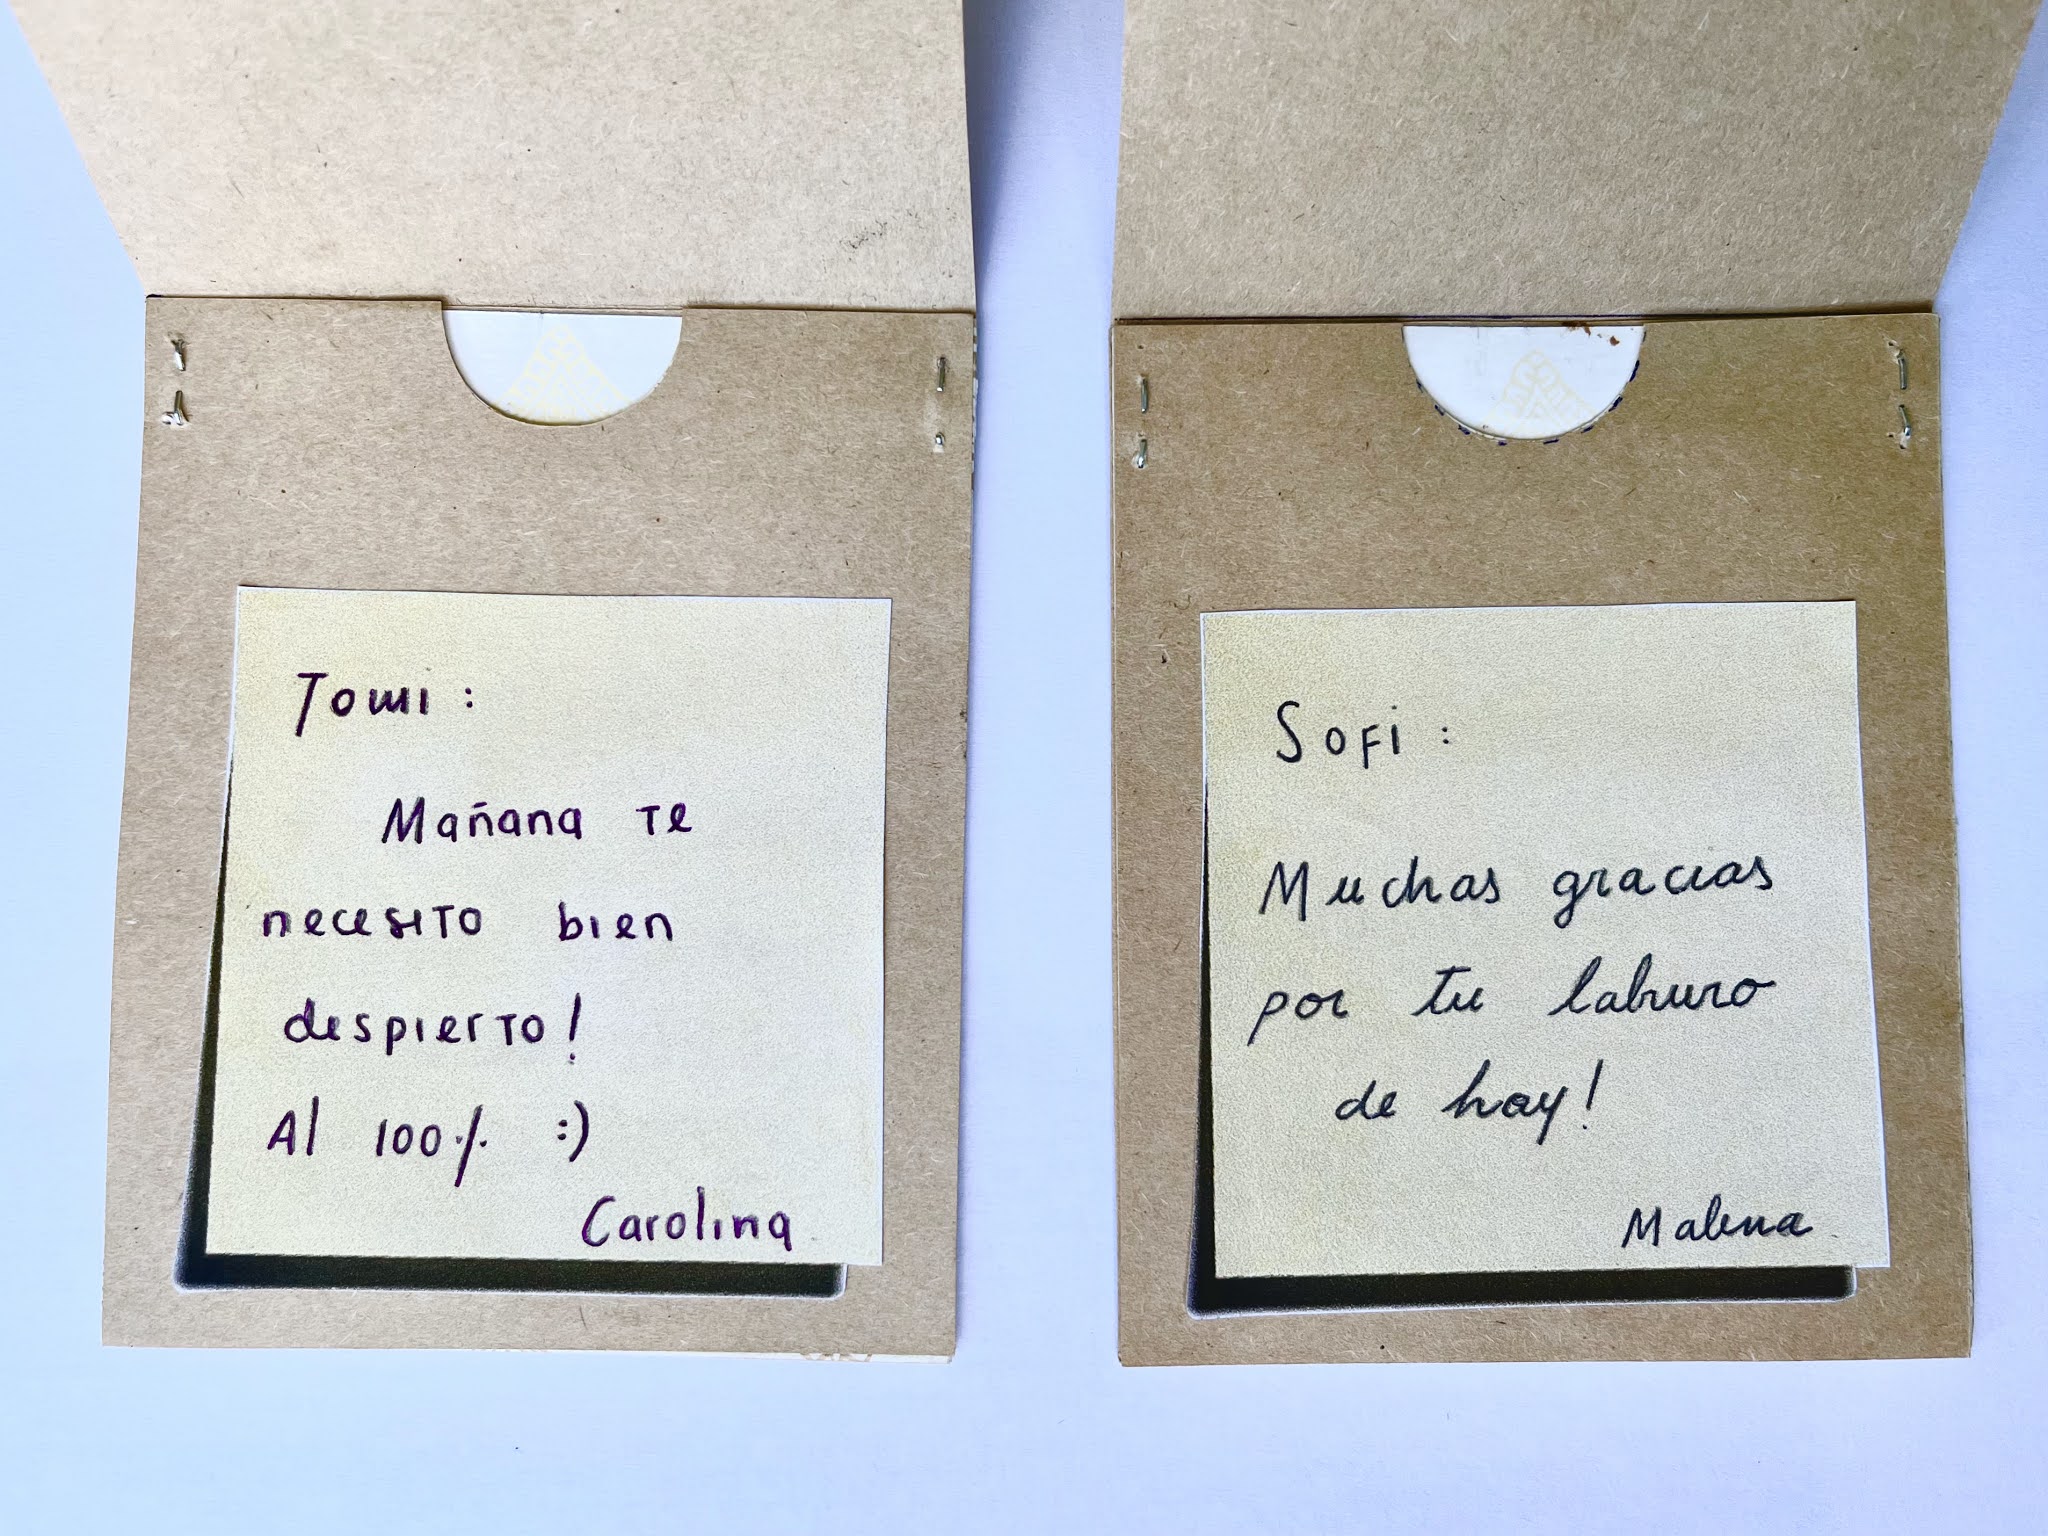 Tomi:
Mañana te
necesito bien
despierto!
Al 100% :)
Carolina
Sofi:
Muchas gracias
por tu laburo
de hoy!
Malena